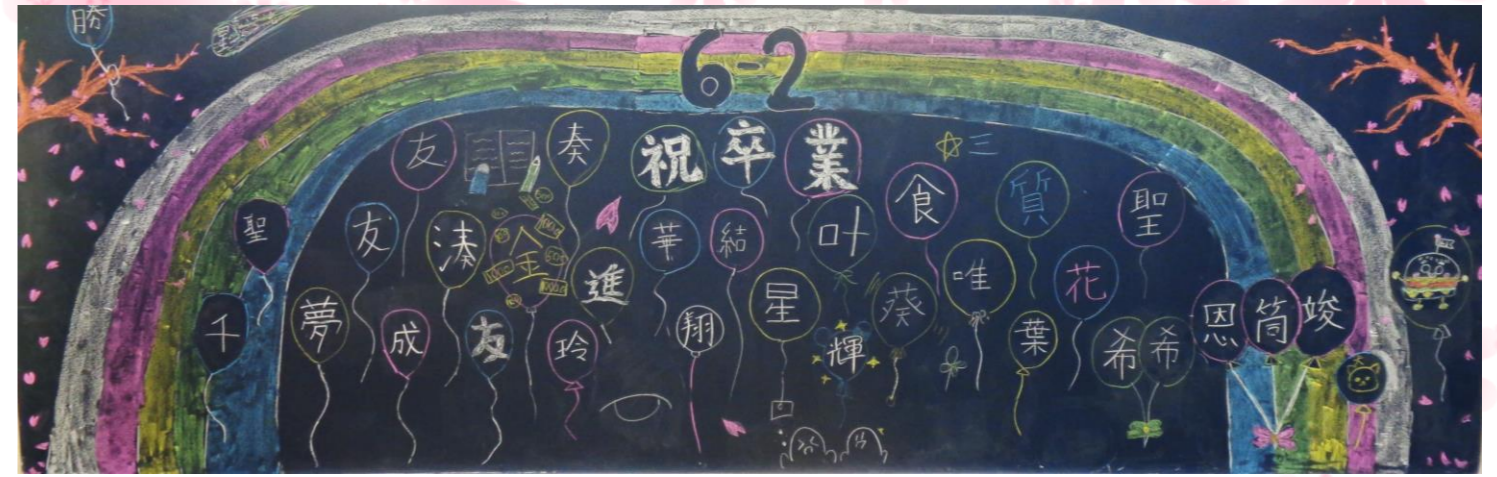 勝
6-2
祝卒業
友
奏
食
質
聖
三
聖
友
湊
金
進
華
結
叶
唯
花
千
夢
成
友
玲
翔
星
輝
葵
葉
希
希
恩
筒
竣